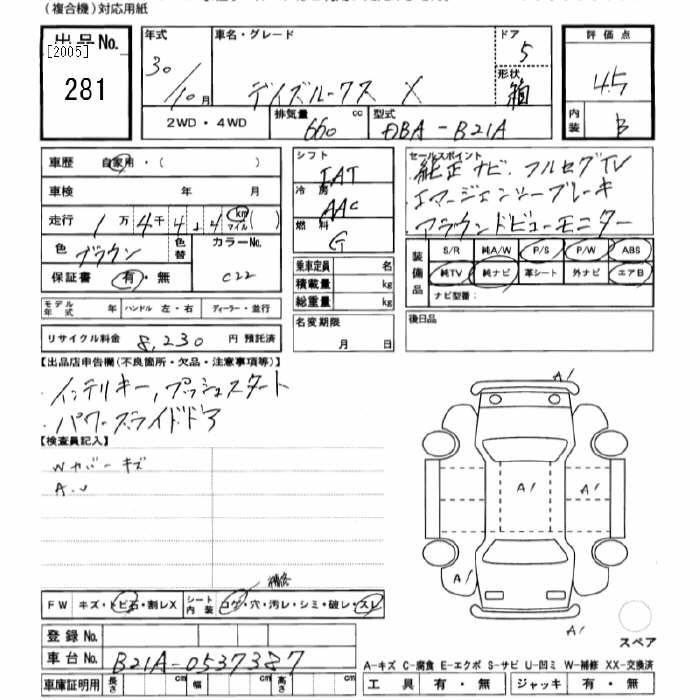 (複合機)対応用紙
出品No.
[2005]
281
年式 車名・グレード ドア 評価点
30/10月 デイズルークス X 5 4.5
形状 箱
2WD・4WD 排気量 660 cc 型式 DBA-B21A
内装 B
車歴 自家用・( )
車検 年 月
走行 1万 4千 4 km マイル ( )
色 ブラウン 色替 カラーNo. C22
保証書 有・無
モデル年式 年 ハンドル 左・右 ディーラー・並行
リサイクル料金 8,230 円 預託済
シフト IAT
冷房 AAC
燃料 G
乗車定員 名
積載量 kg
総重量 kg
名変期限
月 日
セールスポイント
・純正ナビ・フルセグTV
・エマージェンシーブレーキ
・アラウンドビューモニター
装備品 S/R 純A/W P/S P/W ABS
純TV 純ナビ 革シート 外ナビ エアB
ナビ型番:
後日品
【出品店申告欄(不良箇所・欠品・注意事項等)】
・インテリキー, プッシュスタート
・パワースライドドア
【検査員記入】
Wカバーキズ
A.U
A1
A1
A1
A1
A1
スペア
補修
FW キズ・トビ石・割レX シート内装 コゲ・穴・汚レ・シミ・破レ・スレ
登録No.
車台No. B21A-0537387
車庫証明用 長さ cm 幅 cm 高さ cm
A-キズ C-腐食 E-エクボ S-サビ U-凹ミ W-補修 XX-交換済
工具 有・無 ジャッキ 有・無